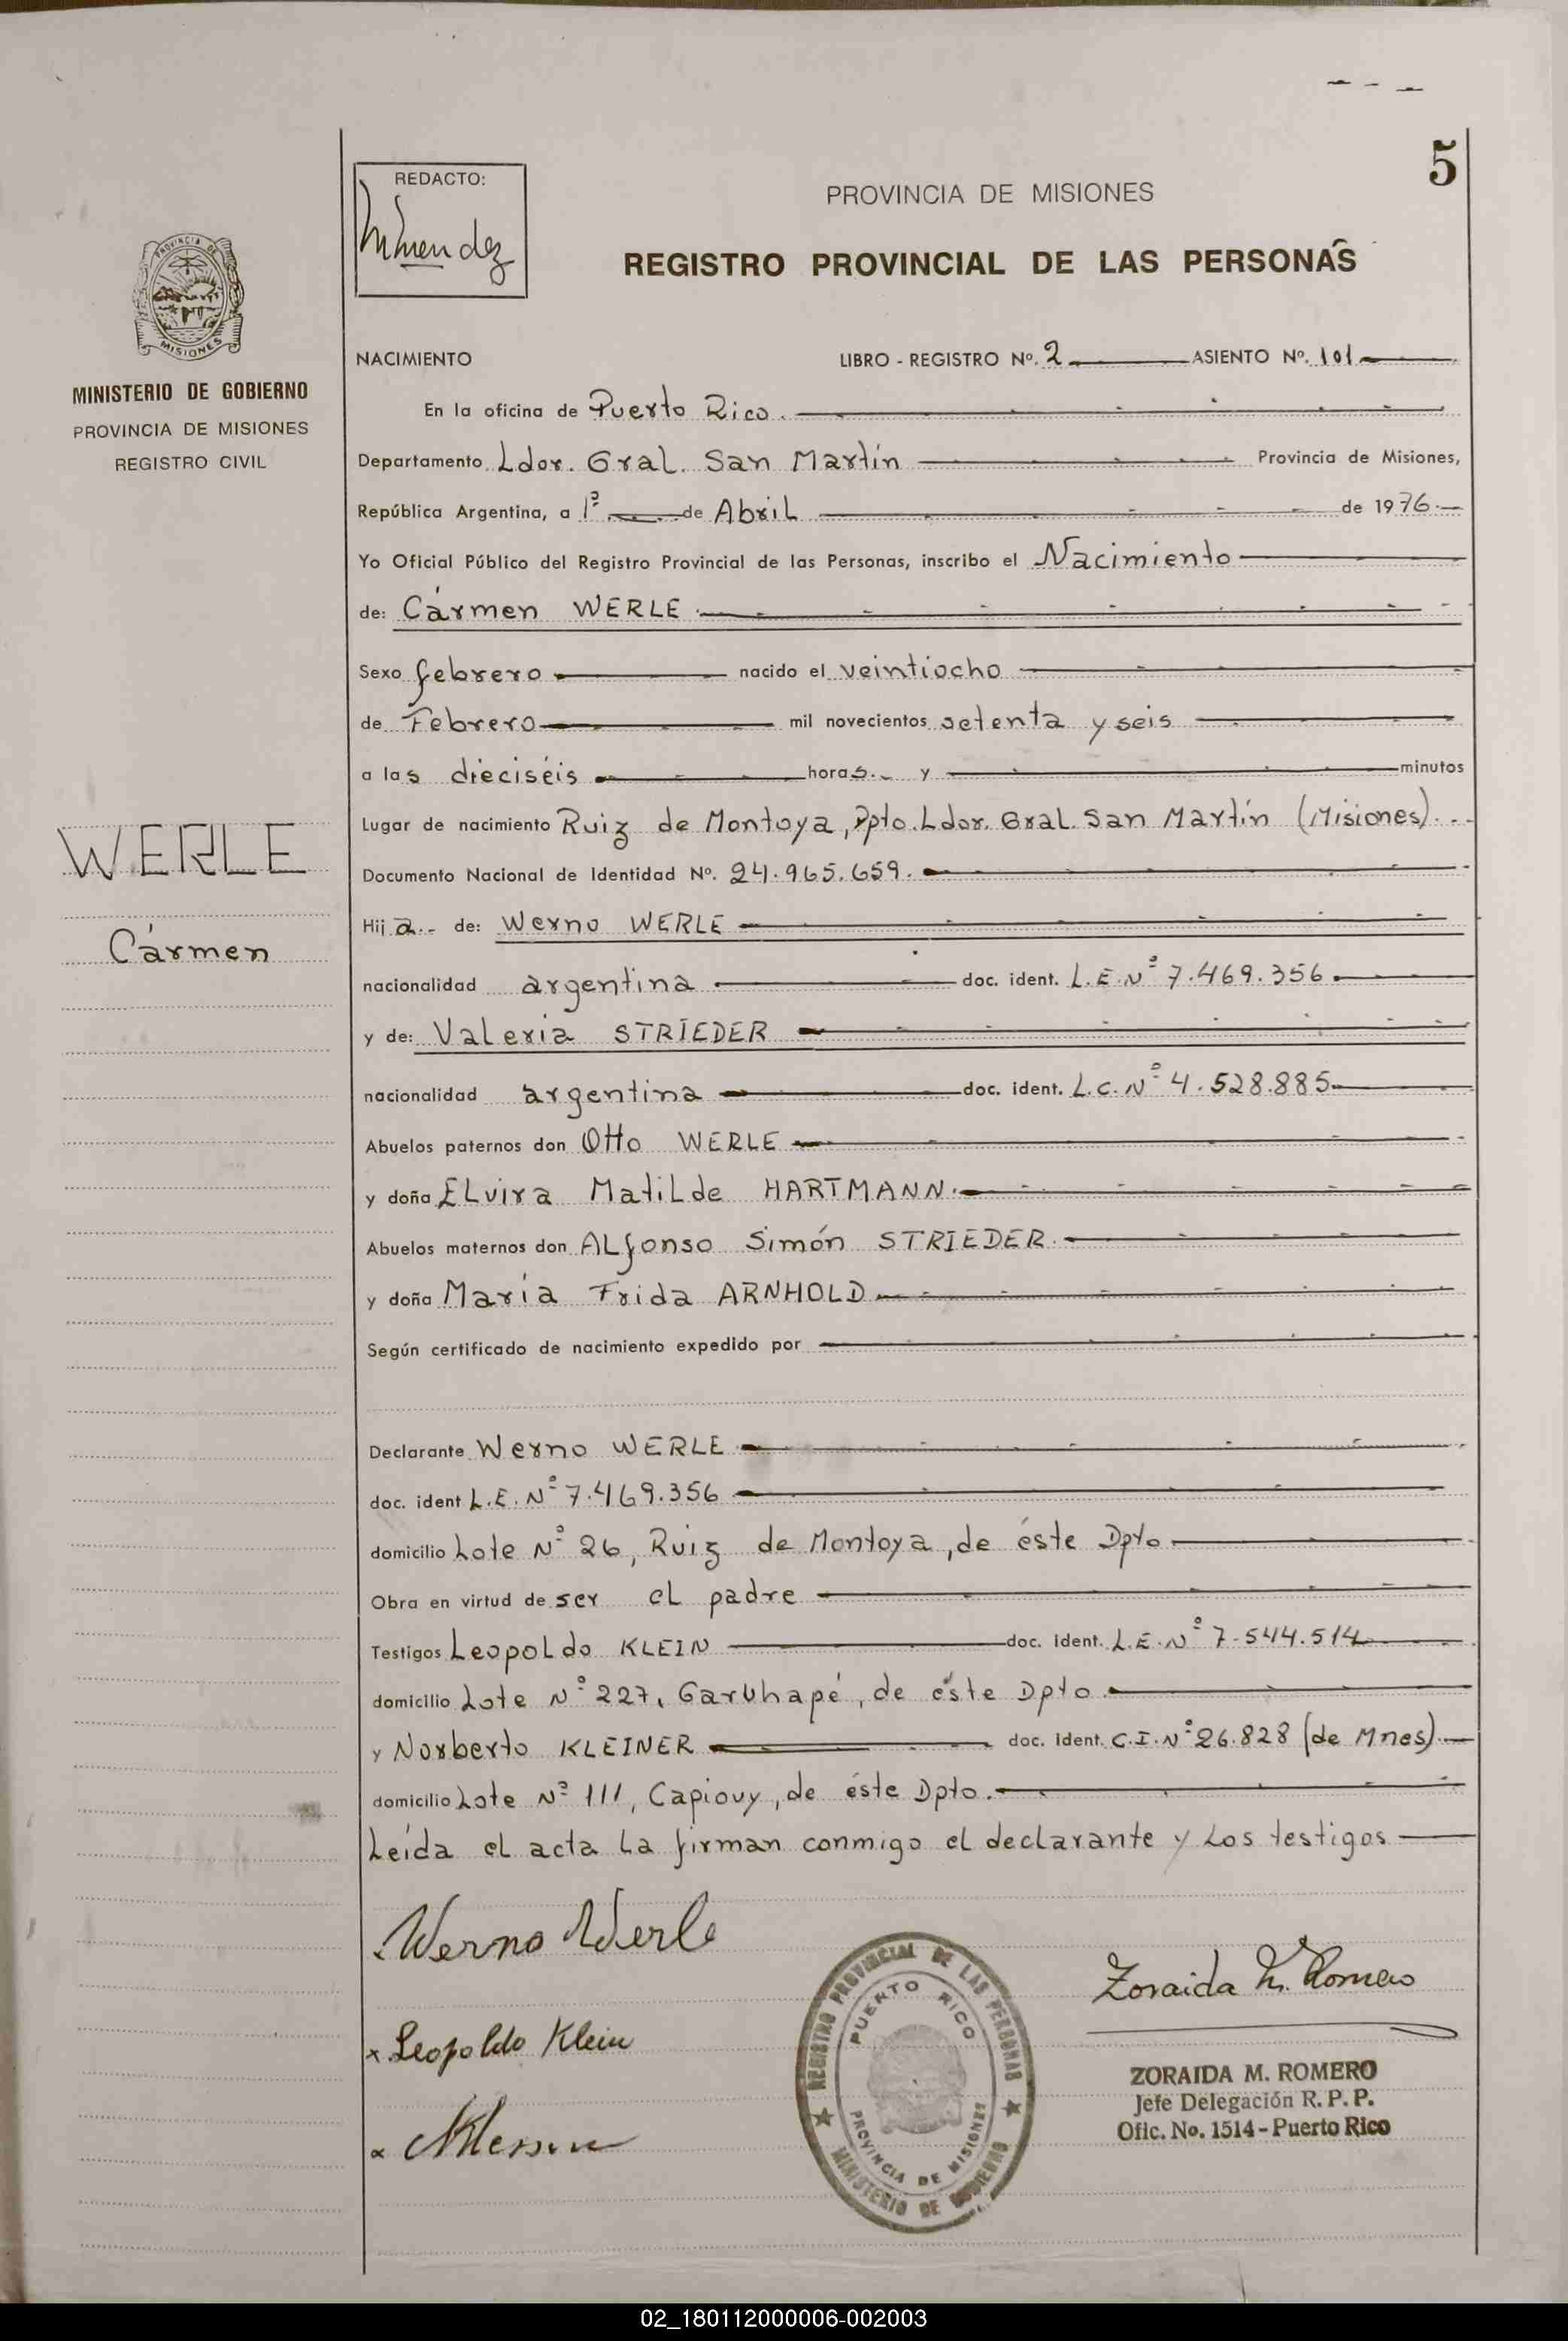 5
REDACTO:
PROVINCIA DE MISIONES
REGISTRO PROVINCIAL DE LAS PERSONAS
PROVINCIA DE MISIONES
MINISTERIO DE GOBIERNO
PROVINCIA DE MISIONES
REGISTRO CIVIL
WERLE
Cármen
NACIMIENTO LIBRO - REGISTRO Nº. 2 ASIENTO Nº. 101
En la oficina de Puerto Rico.
Departamento Ldor. Gral. San Martín Provincia de Misiones,
República Argentina, a 1º de Abril de 1976
Yo Oficial Público del Registro Provincial de las Personas, inscribo el Nacimiento
de: Cármen WERLE
Sexo febrero nacido el veintiocho
de Febrero mil novecientos setenta y seis
a las dieciséis horas. y minutos
Lugar de nacimiento Ruiz de Montoya, Dpto. Ldor. Gral. San Martín (Misiones).
Documento Nacional de Identidad Nº. 24.965.659.
Hija de: Werno WERLE
nacionalidad argentina doc. ident. L.E.Nº 7.469.356
y de: Valeria STRIEDER
nacionalidad argentina doc. ident. L.C.Nº 4.528.885
Abuelos paternos don Otto WERLE
y doña Elvira Matilde HARTMANN.
Abuelos maternos don Alfonso Simón STRIEDER.
y doña María Frida ARNHOLD
Según certificado de nacimiento expedido por
Declarante Werno WERLE
doc. ident L.E.Nº 7.469.356
domicilio Lote Nº 26, Ruiz de Montoya, de éste Dpto
Obra en virtud de ser el padre
Testigos Leopoldo KLEIN doc. Ident. L.E.Nº 7.544.514
domicilio Lote Nº 227, Garuhapé, de éste Dpto.
y Norberto KLEINER doc. Ident. C.I.Nº 26.828 (de Mnes).
domicilio Lote Nº 111, Capiovy, de éste Dpto.
Leída el acta la firman conmigo el declarante y los testigos
Werno Werle
x Leopoldo Klein
REGISTRO PROVINCIAL DE LAS PERSONAS
PUERTO RICO
PROVINCIA DE MISIONES
MINISTERIO DE GOBIERNO
Zoraida M. Romero
ZORAIDA M. ROMERO
Jefe Delegación R. P. P.
Ofic. No. 1514 - Puerto Rico
02_180112000006-002003